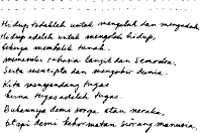 Hidup adalah untuk mengolah dan mengaduh
Hidup adalah untuk mengolah hidup,
bekerja membalik tanah.
menatar rahasia langit dan samodra.
Serta mencipta dan mengukir dunia.
Kita menyandang tugas
kerna tugas adalah tugas.
Bukannya demi sorga atau neraka,
tetapi demi kehormatan seorang manusia.